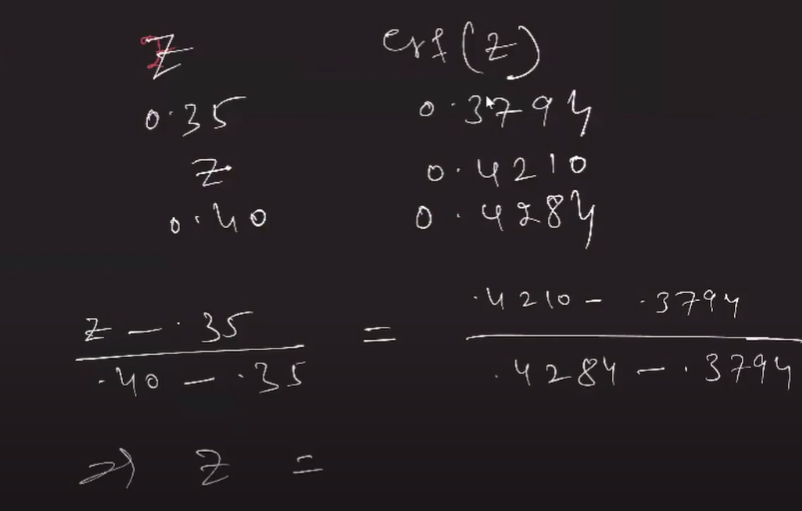 Z erf(z)
0.35 0.3794
z 0.4210
0.40 0.4284
z - .35 = .4210 - .3794
.40 - .35 .4284 - .3794
⇒ z =